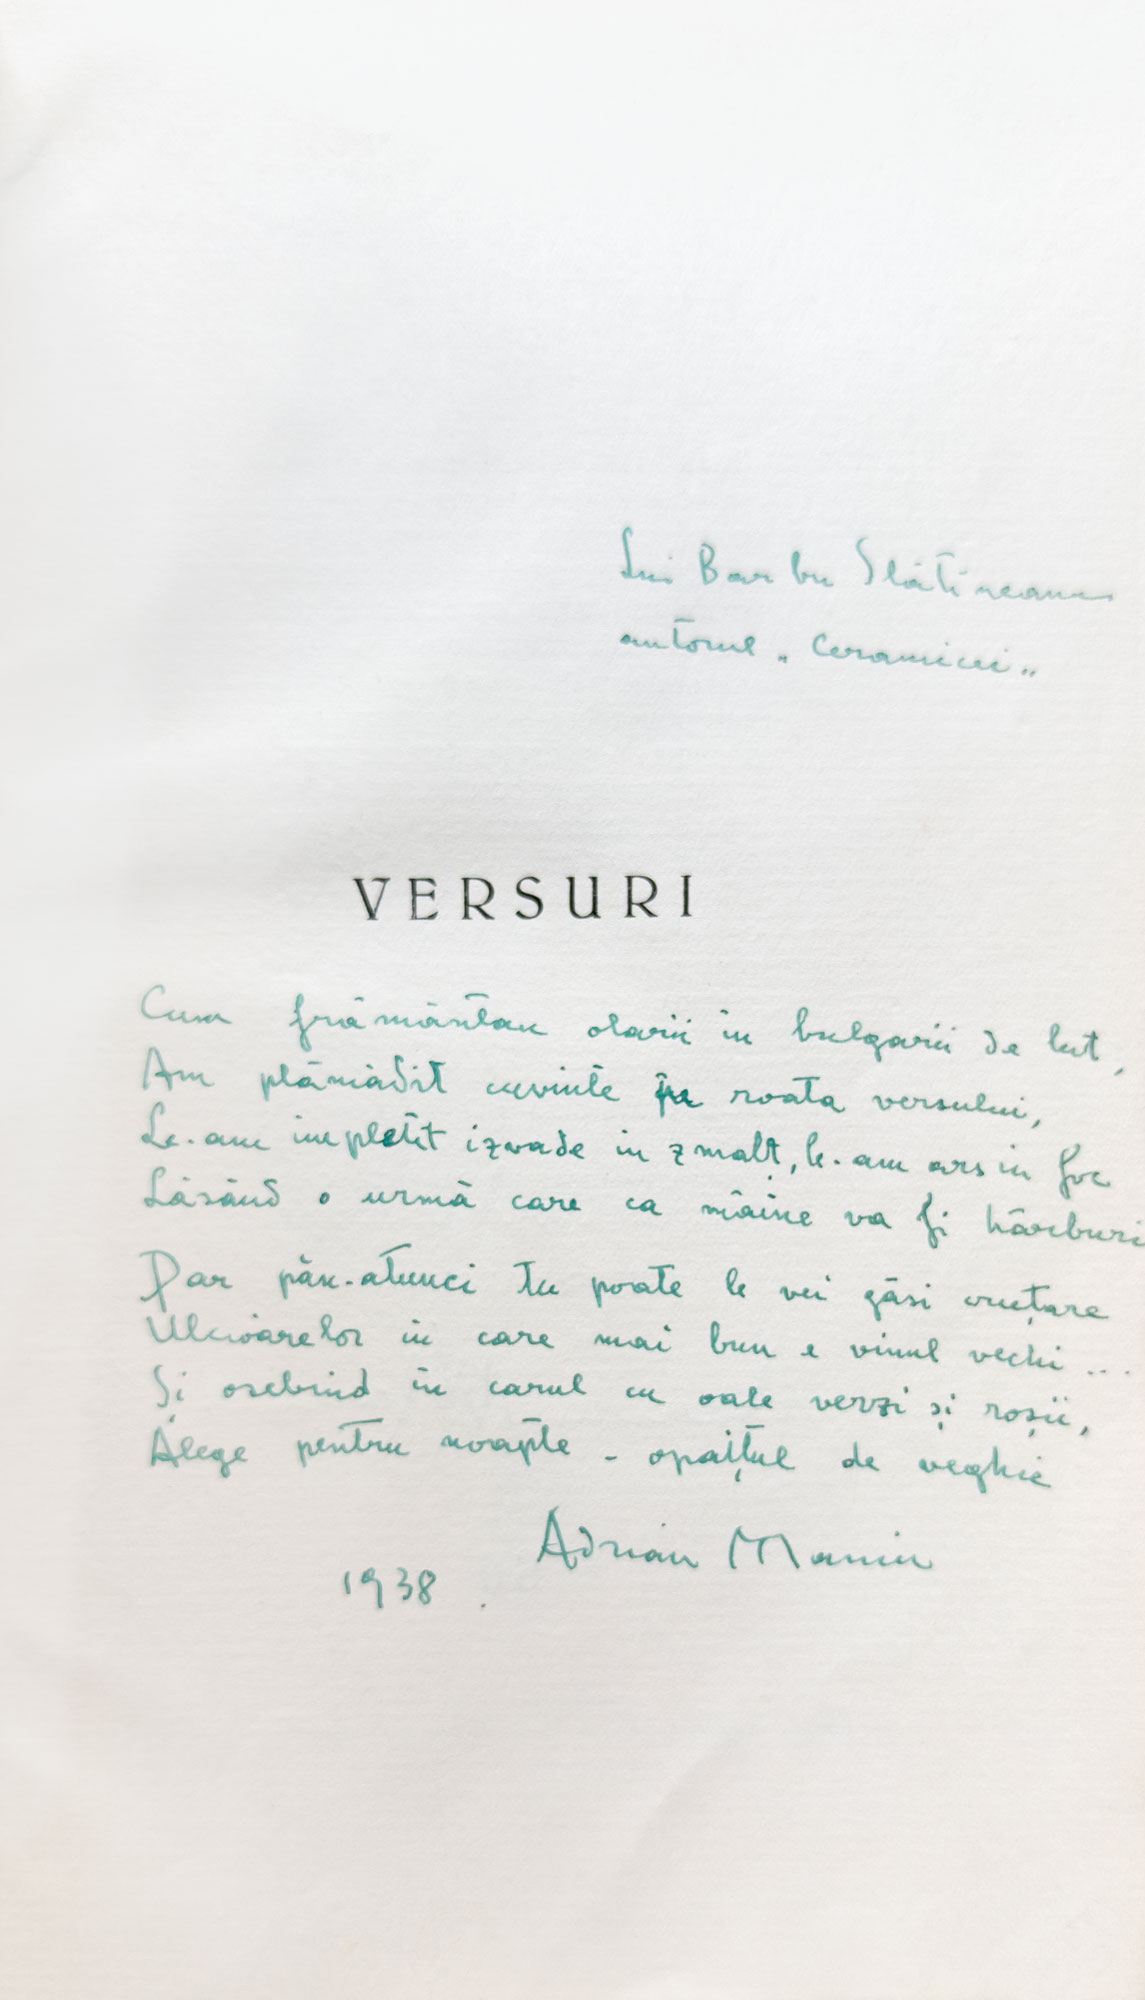 Lui Barbu Slătineanu
autorul „Ceramicei„
VERSURI
Cum frământau olarii în bulgării de lut,
Am plămădit cuvinte pe roata versului,
Le-am împletit izvade în zmalț, le-am ars în foc
Lăsând o urmă care ca mâine va fi hârburi
Dar pân-atunci tu poate le vei găsi cruțare
Ulcioarelor în care mai bun e vinul vechi...
Și osebind în carul cu oale verzi și roșii,
Alege pentru noapte - opaițul de veghie
Adrian Maniu
1938.